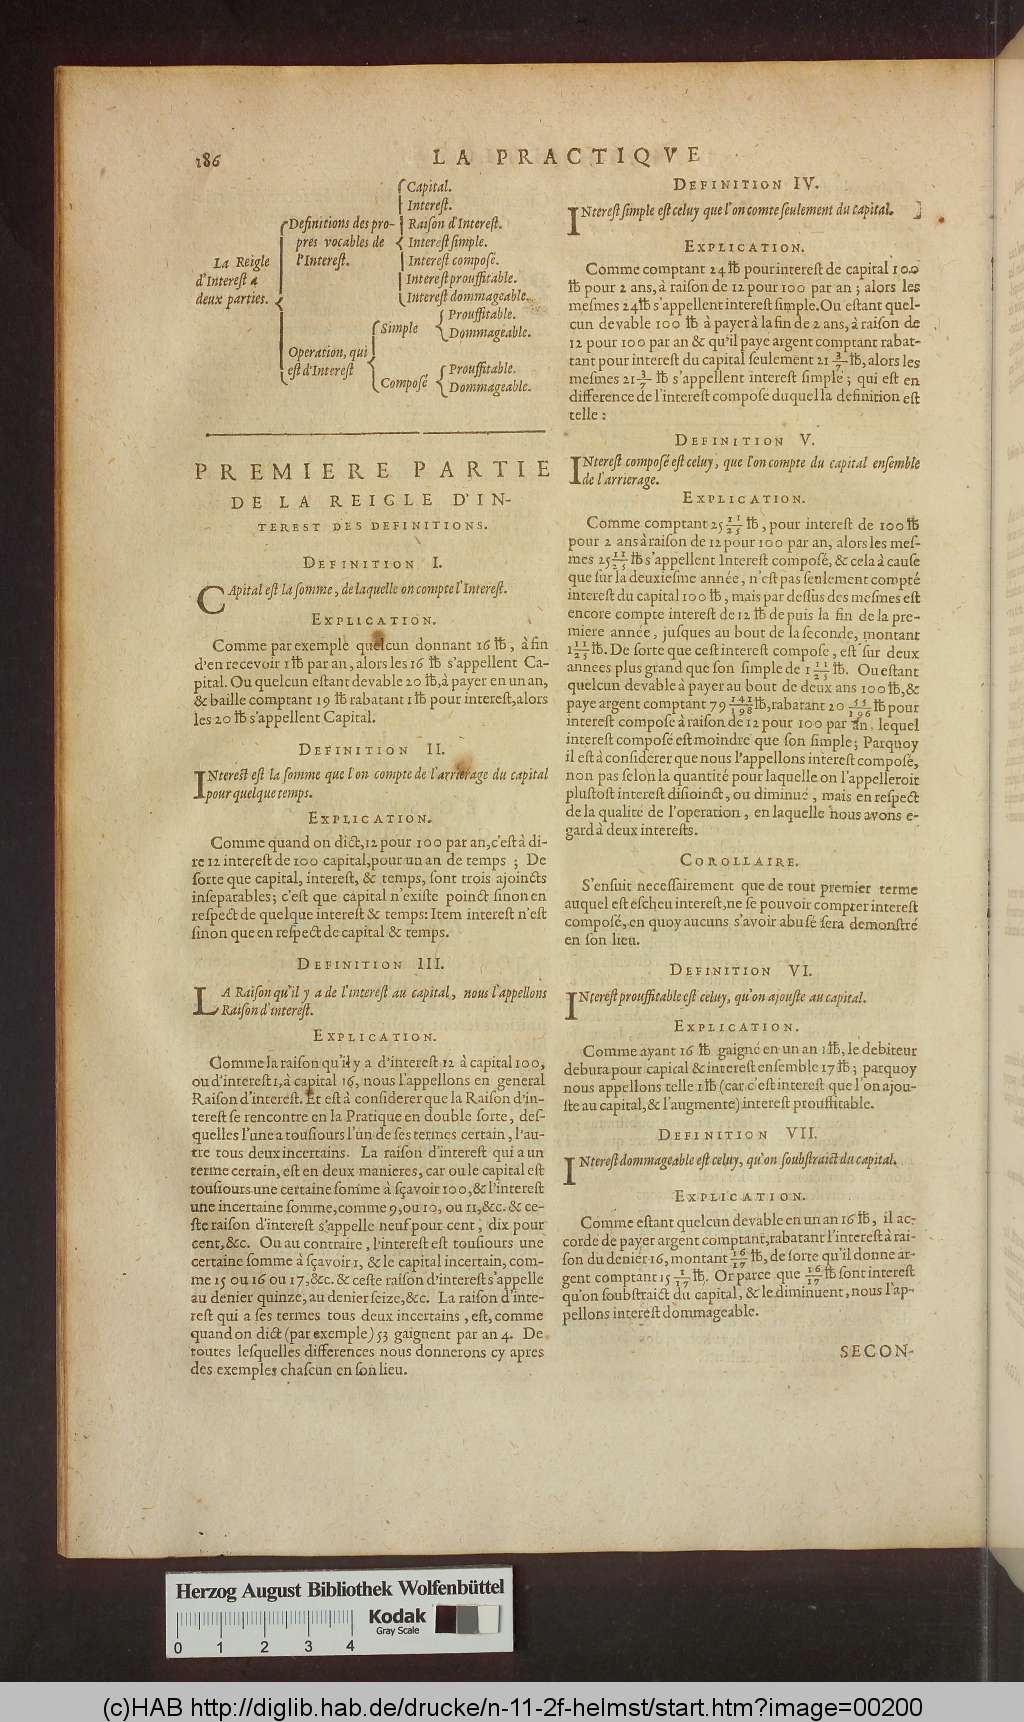 186
LA PRACTIQVE
La Reigle
d'Interest a
deux parties.
Definitions des pro-
pres vocables de
l'Interest.
Capital.
Interest.
Raison d'Interest.
Interest simple.
Interest composé.
Interest prouffitable.
Interest dommageable.
Operation, qui
est d'Interest
Simple
Prouffitable.
Dommageable.
Composé
Prouffitable.
Dommageable.
PREMIERE PARTIE
DE LA REIGLE D'IN-
TEREST DES DEFINITIONS.
DEFINITION I.
CApital est la somme, de laquelle on compte l'Interest.
EXPLICATION.
Comme par exemple quelcun donnant 16 ℔, à fin
d'en recevoir 1 ℔ par an, alors les 16 ℔ s'appellent Ca-
pital. Ou quelcun estant devable 20 ℔, à payer en un an,
& baille comptant 19 ℔ rabatant 1 ℔ pour interest, alors
les 20 ℔ s'appellent Capital.
DEFINITION II.
INterest est la somme que l'on compte de l'arrierage du capital
pour quelque temps.
EXPLICATION.
Comme quand on dict, 12 pour 100 par an, c'est à di-
re 12 interest de 100 capital, pour un an de temps ; De
sorte que capital, interest, & temps, sont trois ajoincts
inseparables; c'est que capital n'existe poinct sinon en
respect de quelque interest & temps: Item interest n'est
sinon que en respect de capital & temps.
DEFINITION III.
LA Raison qu'il y a de l'interest au capital, nous l'appellons
Raison d'interest.
EXPLICATION.
Comme la raison qu'il y a d'interest 12 à capital 100,
ou d'interest 1, à capital 16, nous l'appellons en general
Raison d'interest. Et est à considerer que la Raison d'in-
terest se rencontre en la Pratique en double sorte, des-
quelles l'une a tousiours l'un de ses termes certain, l'au-
tre tous deux incertains. La raison d'interest qui a un
terme certain, est en deux manieres, car ou le capital est
tousiours une certaine somme à sçavoir 100, & l'interest
une incertaine somme, comme 9, ou 10, ou 11, &c. & ce-
ste raison d'interest s'appelle neuf pour cent, dix pour
cent, &c. Ou au contraire, l'interest est tousiours une
certaine somme à sçavoir 1, & le capital incertain, com-
me 15 ou 16 ou 17, &c. & ceste raison d'interest s'appelle
au denier quinze, au denier seize, &c. La raison d'inte-
rest qui a ses termes tous deux incertains, est, comme
quand on dict (par exemple) 53 gaignent par an 4. De
toutes lesquelles differences nous donnerons cy apres
des exemples chascun en son lieu.
DEFINITION IV.
INterest simple est celuy que l'on comte seulement du capital.
EXPLICATION.
Comme comptant 24 ℔ pour interest de capital 100
℔ pour 2 ans, à raison de 12 pour 100 par an ; alors les
mesmes 24 ℔ s'appellent interest simple. Ou estant quel-
cun devable 100 ℔ à payer à la fin de 2 ans, à raison de
12 pour 100 par an & qu'il paye argent comptant rabat-
tant pour interest du capital seulement 21 3/7 ℔, alors les
mesmes 21 3/7 ℔ s'appellent interest simple ; qui est en
difference de l'interest compose duquel la definition est
telle :
DEFINITION V.
INterest composé est celuy, que l'on compte du capital ensemble
de l'arrierage.
EXPLICATION.
Comme comptant 25 11/25 ℔, pour interest de 100 ℔
pour 2 ans à raison de 12 pour 100 par an, alors les mes-
mes 25 11/25 ℔ s'appellent Interest composé, & cela à cause
que sur la deuxiesme année, n'est pas seulement compté
interest du capital 100 ℔, mais par dessus des mesmes est
encore compte interest de 12 ℔ depuis la fin de la pre-
miere année, jusques au bout de la seconde, montant
1 11/25 ℔. De sorte que cest interest compose, est sur deux
annees plus grand que son simple de 1 11/25 ℔. Ou estant
quelcun devable à payer au bout de deux ans 100 ℔, &
paye argent comptant 79 141/198 ℔, rabatant 20 55/196 ℔ pour
interest compose à raison de 12 pour 100 par an, lequel
interest composé est moindre que son simple; Parquoy
il est à considerer que nous l'appellons interest composé,
non pas selon la quantité pour laquelle on l'appelleroit
plustost interest disioinct, ou diminué, mais en respect
de la qualité de l'operation, en laquelle nous avons e-
gard à deux interests.
COROLLAIRE.
S'ensuit necessairement que de tout premier terme
auquel est escheu interest, ne se pouvoir compter interest
composé, en quoy aucuns s'avoir abusé sera demonstré
en son lieu.
DEFINITION VI.
INterest prouffitable est celuy, qu'on ajouste au capital.
EXPLICATION.
Comme ayant 16 ℔ gaigné en un an 1 ℔, le debiteur
debura pour capital & interest ensemble 17 ℔ ; parquoy
nous appellons telle 1 ℔ (car c'est interest que l'on ajou-
ste au capital, & l'augmente) interest prouffitable.
DEFINITION VII.
INterest dommageable est celuy, qu'on soubstraict du capital.
EXPLICATION.
Comme estant quelcun devable en un an 16 ℔, il ac-
corde de payer argent comptant, rabatant l'interest à rai-
son du denier 16, montant 16/17 ℔, de sorte qu'il donne ar-
gent comptant 15 1/17 ℔. Or parce que 16/17 ℔ sont interest
qu'on soubstraict du capital, & le diminuent, nous l'ap-
pellons interest dommageable.
SECON-
Herzog August Bibliothek Wolfenbüttel
0 1 2 3 4
Kodak
Gray Scale
(c)HAB http://diglib.hab.de/drucke/n-11-2f-helmst/start.htm?image=00200